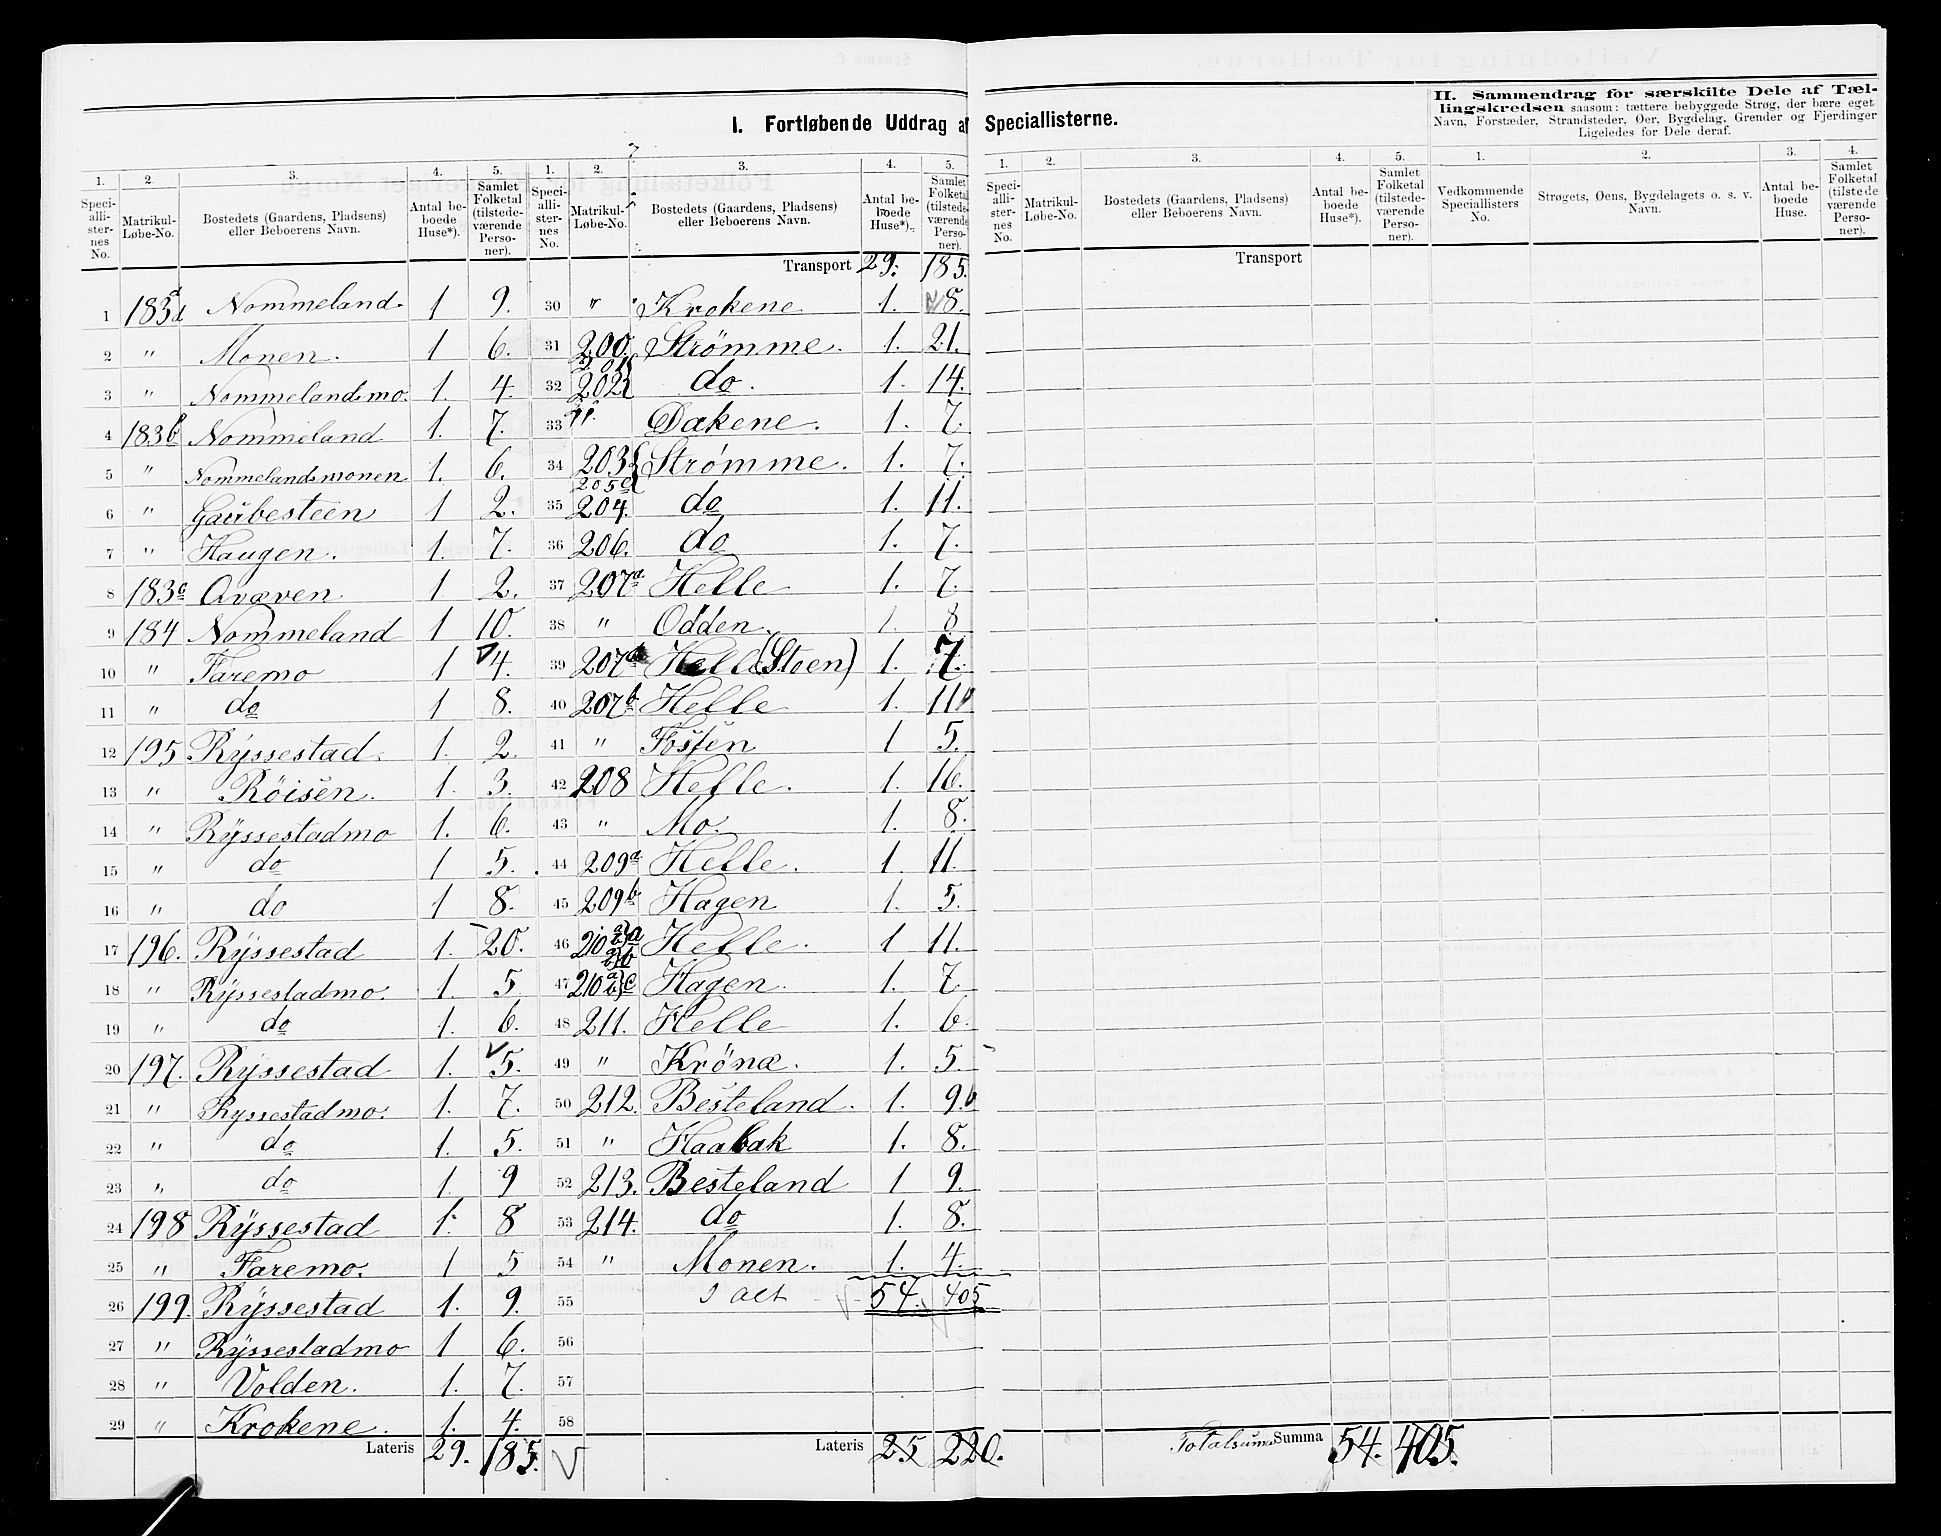 I. Fortløbende Uddrag af Speciallisterne.
II. Sammendrag for særskilte Dele af Tæl-
lingskredsen saasom: tættere bebyggede Strøg, der bære eget
Navn, Forstæder, Strandsteder, Øer, Bygdelag, Grender og Fjerdinger
Ligeledes for Dele deraf.
1. 2. 3. 4. 5. 1. 2. 3. 4. 5. 1. 2. 3. 4. 5. 1. 2. 3. 4.
Speci-allister-nes No. Matrikul-Løbe-No. Bostedets (Gaardens, Pladsens) eller Beboerens Navn. Antal be-boede Huse*). Samlet Folketal (tilstede-værende Perso-ner).
Speci-allister-nes No. Matrikul-Løbe-No. Bostedets (Gaardens, Pladsens) eller Beboerens Navn. Antal be-boede Huse*). Samlet Folketal (tilstede-værende Perso-ner).
Speci-allister-nes No. Matrikul-Løbe-No. Bostedets (Gaardens, Pladsens) eller Beboerens Navn. Antal be-boede Huse*). Samlet Folketal (tilstede-værende Perso-ner).
Vedkommende Speciallisters No. Strøgets, Øens, Bygdelagets o. s. v. Navn. Antal be-boede Huse. Samlet Folketal (tilstede-værende Perso-ner).
1 183a Nommeland 1 9.
2 " Monen. 1 6.
3 " Nommelandsmo. 1. 4.
4 183b Nommeland 1. 7.
5 " Nommelandsmonen 1. 6.
6 " Gaübesteen 1 2.
7 " Haugen. 1. 7.
8 183c Qvæven 1 2.
9 184 Nommeland 1 10.
10 " Faremo 1 4.
11 " do 1 8.
12 195 Ryssestad. 1. 2.
13 " Röisen. 1. 3.
14 " Ryssestadmo 1. 6.
15 " do 1 5.
16 " do 1 8.
17 196. Ryssestad 1. 20.
18 " Ryssestadmo. 1. 5
19 " do 1. 6.
20 197. Ryssestad 1. 5.
21 " Ryssestadmo. 1. 7.
22 " do 1. 5.
23 " do 1. 9
24 198 Ryssestad 1. 8
25 " Faremo. 1 5
26 199. Ryssestad 1. 9.
27 " Ryssestadmo 1 6.
28 " Volden. 1. 7.
29 " Krokene. 1. 4.
Lateris 29. 185.
Transport 29. 185.
30 " Krokene 1. 8.
31 200. Strömme. 1. 21.
32 201 202 do. 1. 14.
33 ". Dakene. 1. 7.
34 203 205c Strömme. 1. 7.
35 204. do 1. 11.
36 206. do 1. 7.
37 207a Helle 1. 7.
38 " Odden. 1. 8
39 207a Helle (Stoen) 1. 7.
40 207b Helle 1. 11
41 " Fossen 1 5.
42 208 Helle. 1. 16.
43 " Mo. 1. 8.
44 209a Helle. 1. 11.
45 209b Hagen 1. 5.
46 210 Helle. 1 11.
47 210 Hagen. 1. 7.
48 211. Helle 1. 6.
49 " Krönæ. 1. 5.
50 212. Besteland. 1. 9.
51 " Haabak 1. 8.
52 213. Besteland 1 9.
53 214. do 1. 8.
54 " Monen. 1. 4.
55 I alt 54. 405
56
57
58
Lateris 25 220.
Transport
Totalsum Summa 54. 405.